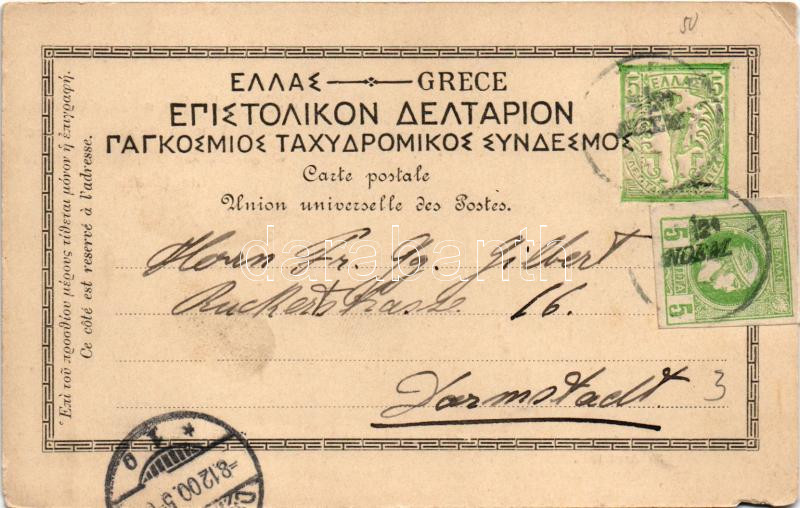 50
ΕΛΛΑΣ GRECE
ΕΠΙΣΤΟΛΙΚΟΝ ΔΕΛΤΑΡΙΟΝ
ΠΑΓΚΟΣΜΙΟΣ ΤΑΧΥΔΡΟΜΙΚΟΣ ΣΥΝΔΕΣΜΟΣ
Carte postale
Union universelle des Postes.
Herrn Fr. Gg. Gilbert
Ruckertstrasse 16.
Darmstadt
3
Ἐπὶ τοῦ προσθίου μέρους τίθεται μόνον ἡ ἐπιγραφή.
Ce côté est reservé à l'adresse.
5 ΕΛΛΑΣ 5
124
ΝΟΕΜ
5 5
-8.12.00.5-6
darabanth